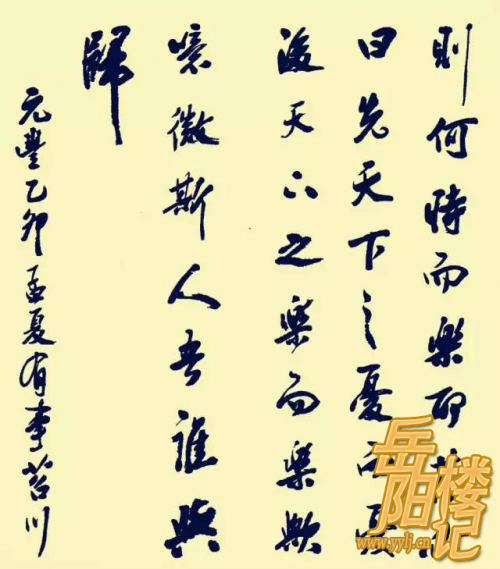 則何時而樂耶
曰先天下之憂而憂
後天下之樂而樂歟
噫微斯人吾誰與
歸
元豐乙卯孟夏有事苕川
岳阳楼记
www.yylj.cn